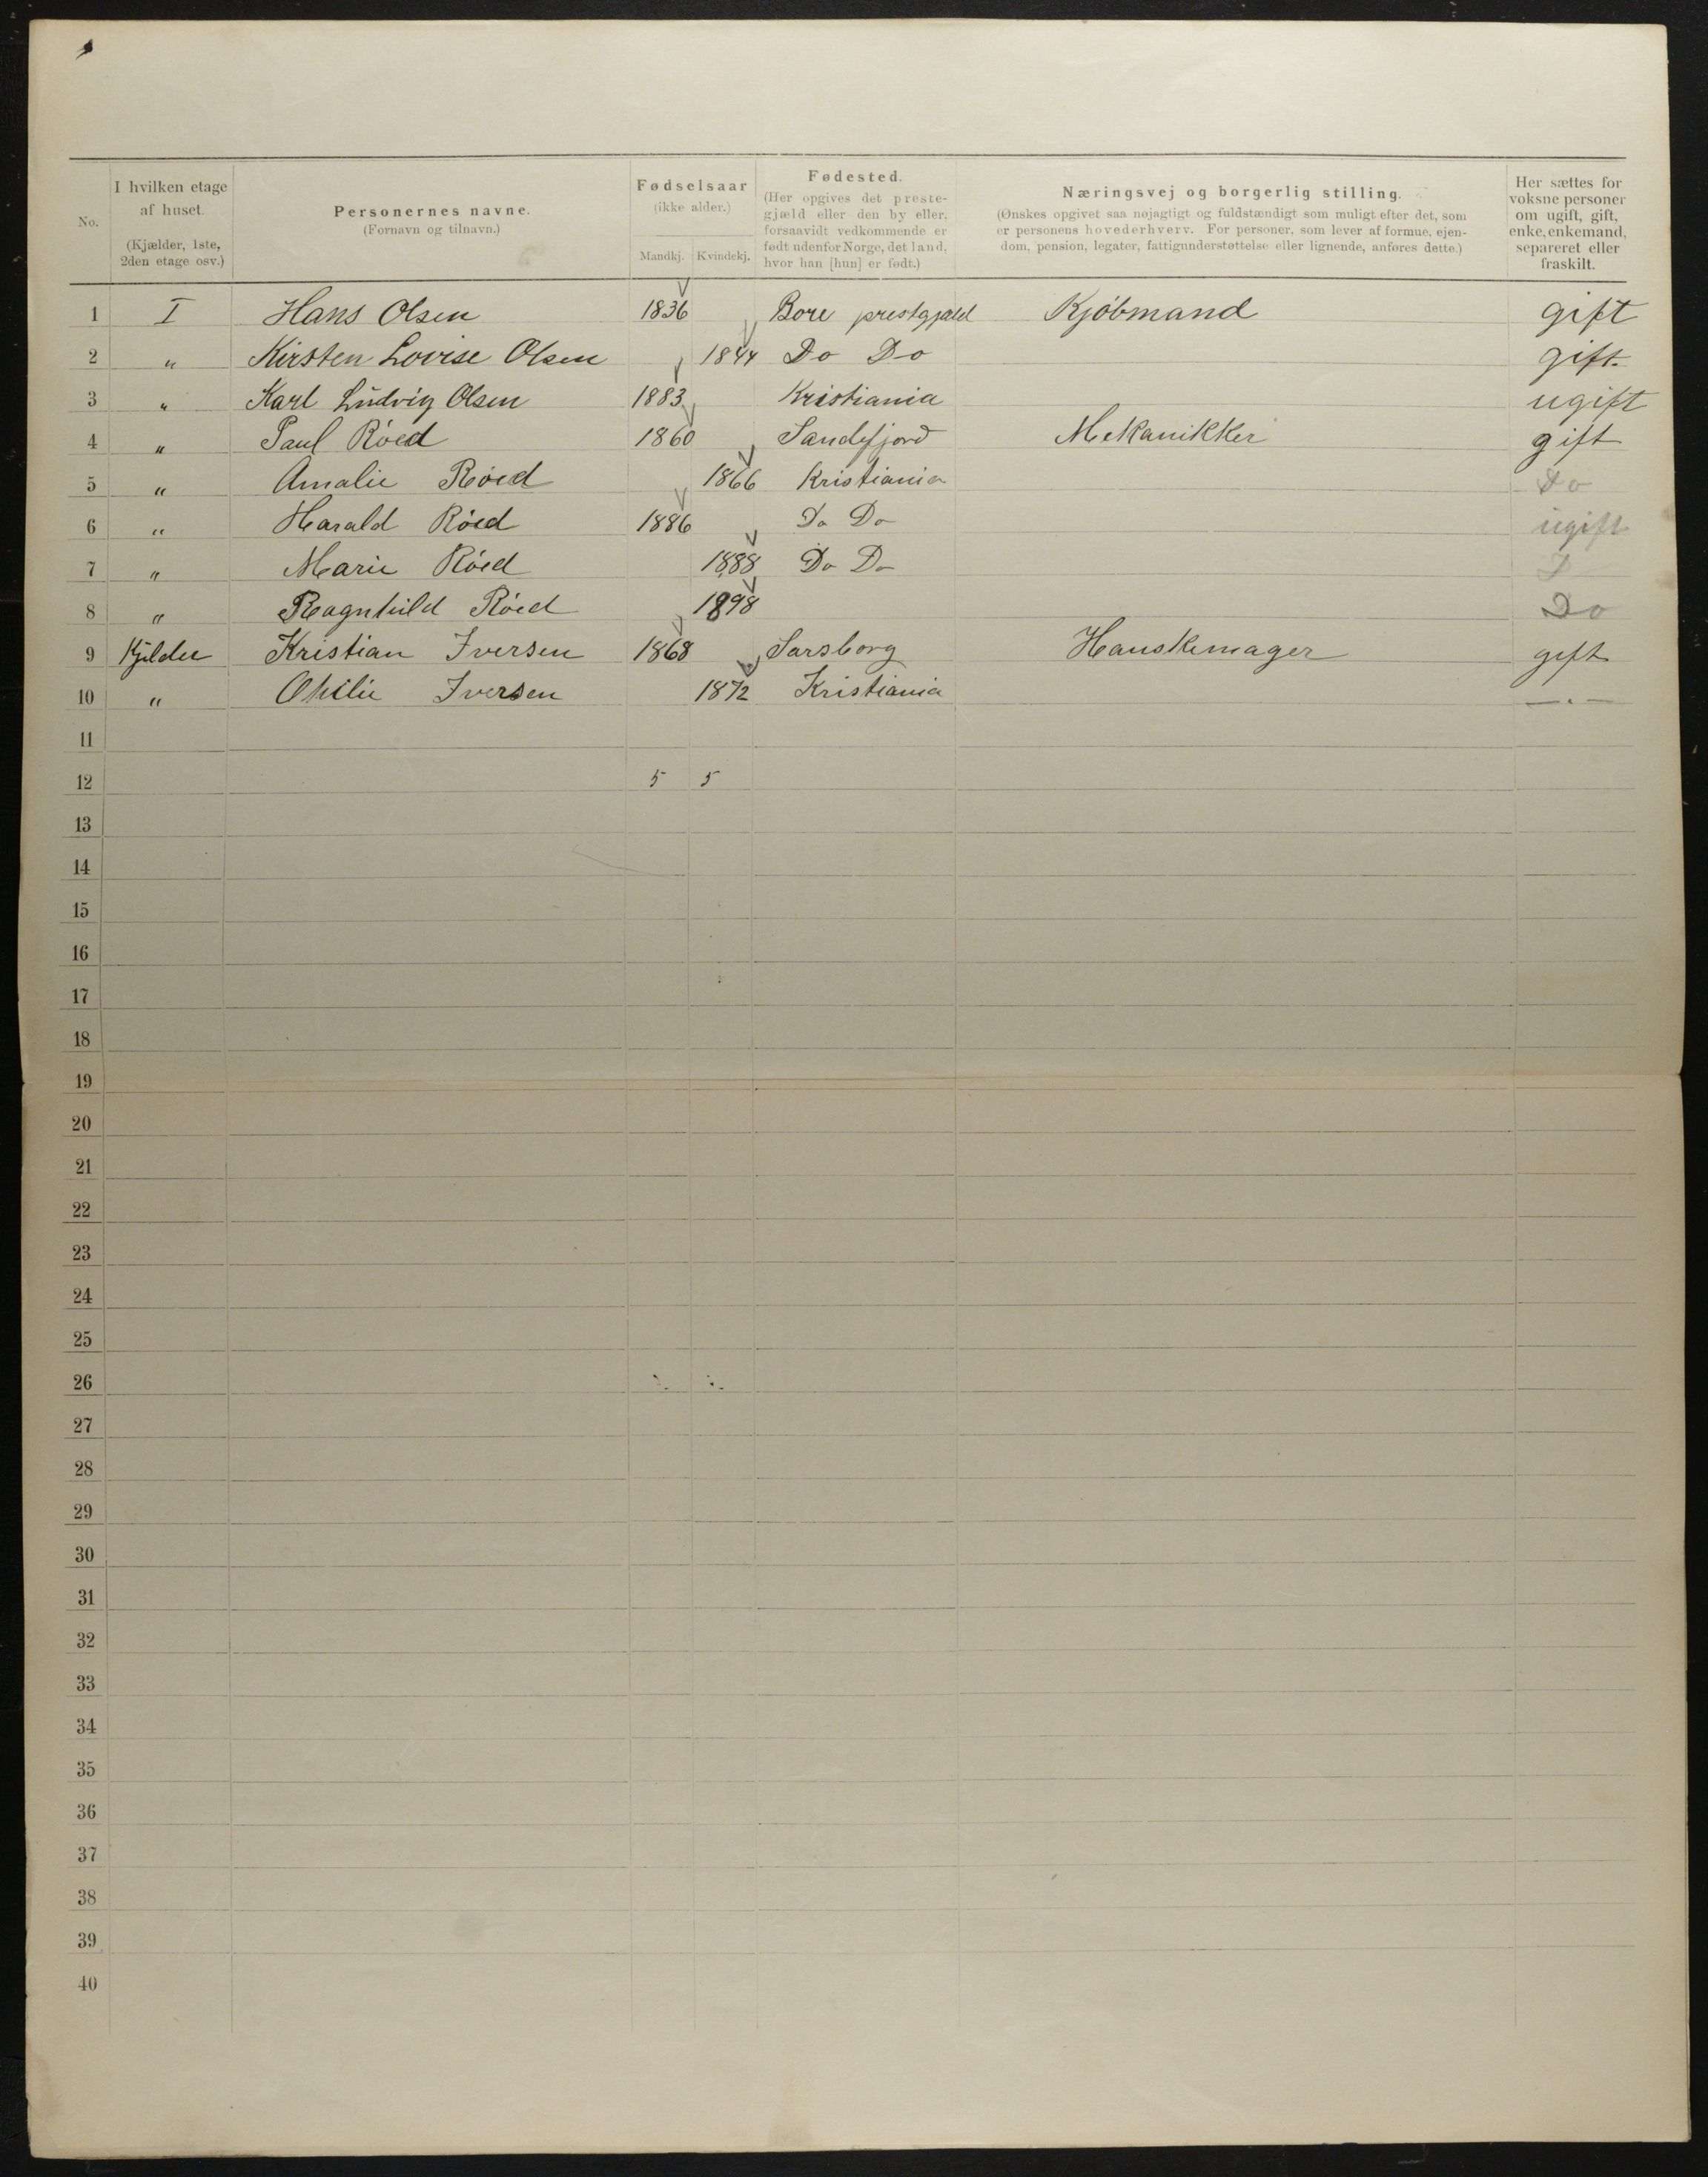 No.
I hvilken etage af huset. (Kjælder, 1ste, 2den etage osv.)
Personernes navne. (Fornavn og tilnavn.)
Fødselsaar (ikke alder.)
Mandkj. Kvindekj.
Fødested.
(Her opgives det preste-
gjæld eller den by eller,
forsaavidt vedkommende er
født udenfor Norge, det land,
hvor han [hun] er født.)
Næringsvej og borgerlig stilling.
(Ønskes opgivet saa nøjagtigt og fuldstændigt som muligt efter det, som
er personens hovederhverv. For personer, som lever af formue, ejen-
dom, pension, legater, fattigunderstøttelse eller lignende, anføres dette.)
Her sættes for
voksne personer
om ugift, gift,
enke, enkemand,
separeret eller
fraskilt.
1 I Hans Olsen 1836 Bore prestgjæld Kjøbmand gift
2 " Kirsten Lovise Olsen 1844 Do Do gift
3 " Karl Ludvig Olsen 1883 Kristiania ugift
4 " Paul Röed 1860 Sandefjord Mekanikker gift
5 " Amalie Röed 1866 Kristiania Do
6 " Harald Röed 1886 Do Do ugift
7 " Marie Röed 1888 Do Do D
8 " Ragnhild Röed 1898 Do
9 Kjelder Kristian Iversen 1868 Sarsborg Hanskemager gift
10 " Othilie Iversen 1872 Kristiania —.—
11
12 5 5
13
14
15
16
17
18
19
20
21
22
23
24
25
26
27
28
29
30
31
32
33
34
35
36
37
38
39
40